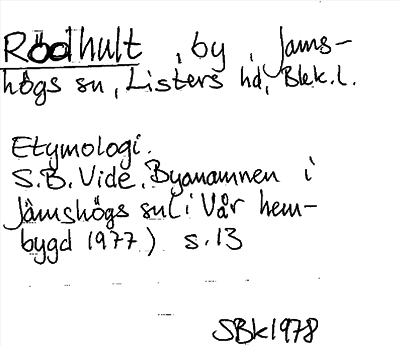 Rödhult, by, Jäms-
högs sn, Listers hd, Blek. l.
Etymologi.
S.B. Vide, Bynamnen i
Jämshögs sn (i Vår hem-
bygd 1977) s. 13
SBk1978